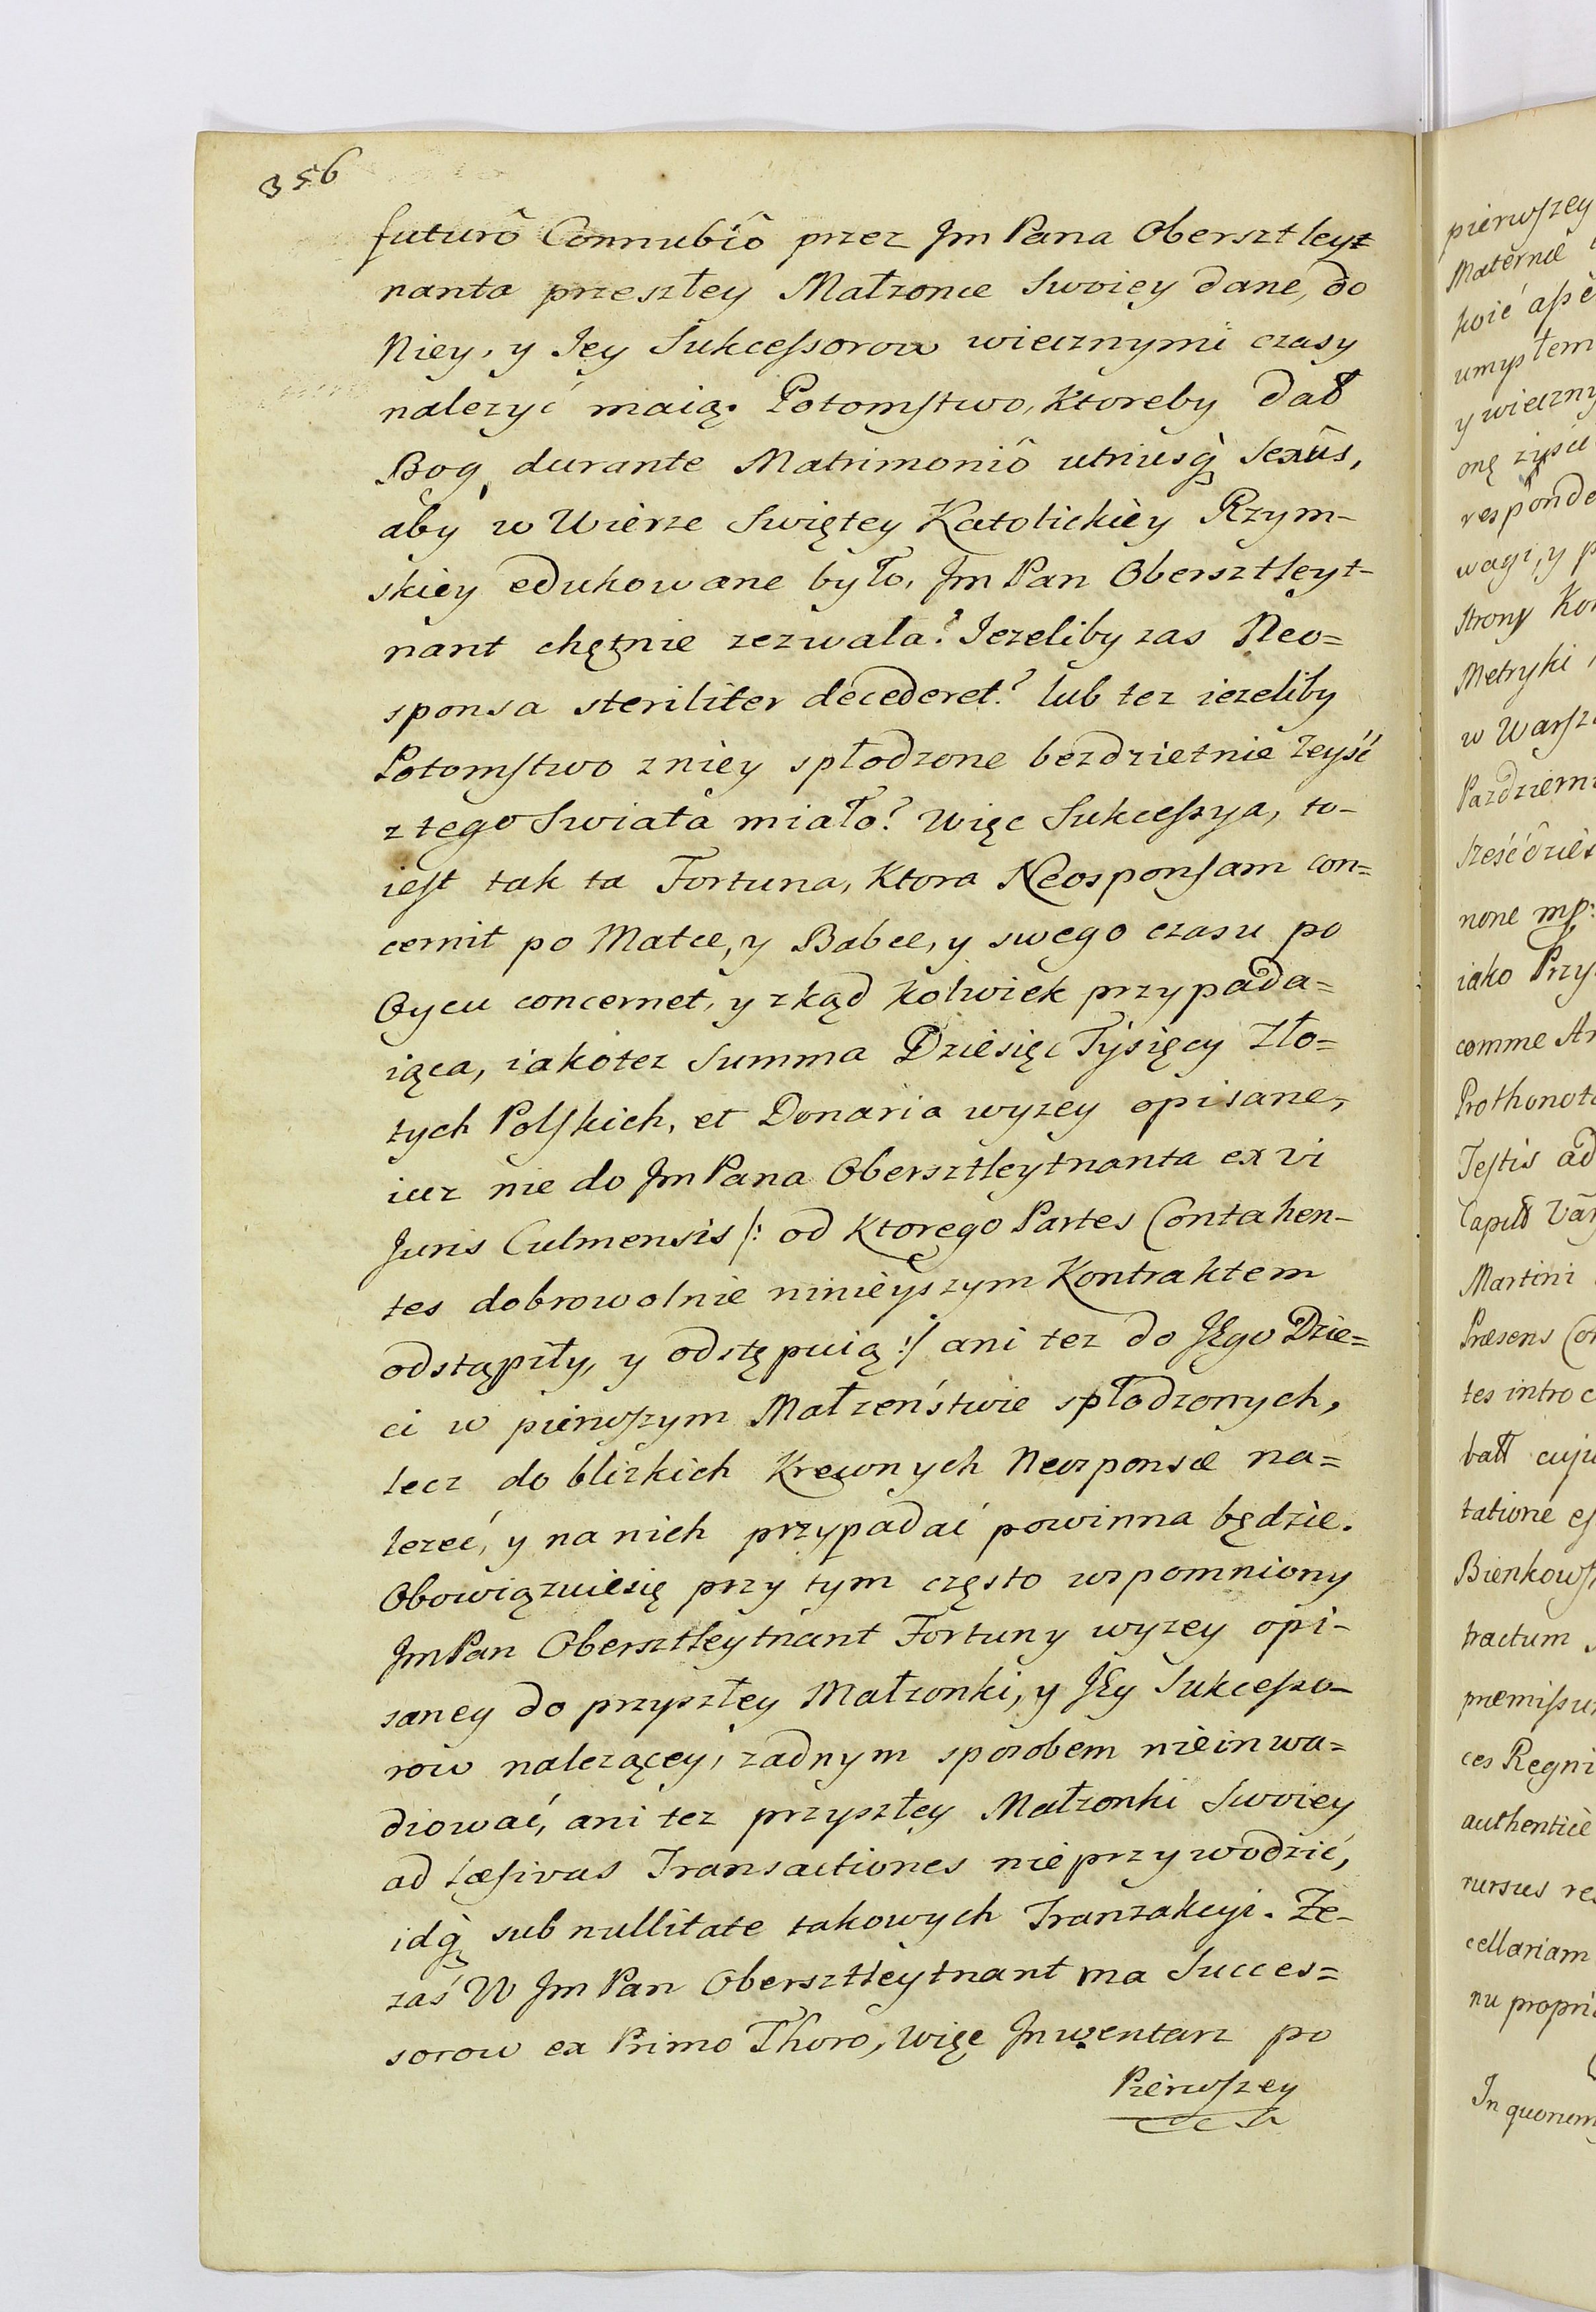 356
futurô Connubiô przez Jm Pana Obersztleyt
nanta przeszłey Małzonce Swoiey dane, do
Niey, y Jey Sukceſsorow wiecznymi czasy
nalezyć maią. Potomſtwo, ktoreby dał
Bog durante Matrimoniô utriusq̀ Sexûs,
aby w Wierze Swiętey Katolickiey Rzym-
skiey edukowane było, Jm Pan Obersztleyt-
nant chętnie zezwala? Jezeliby zas Neo=
sponsa steriliter decederet? lub tez iezeliby
Potomſtwo zniey spłodzone bezdzietnie zeyść
z tego Swiata miało? Więc Sukceſsya, to-
ieſt tak ta Fortuna, ktora Neosponſam con=
cernit po Matce, y Babce, y swego czasu po
Oycu concernet, y zkąd kolwiek przypada=
iąca, iakotez Summa Dziesięc Tysięcy Zło=
tych Polſkich, et Donaria wyzey opisane,
iuz nie do Jm Pana Obersztleytnanta ex vi
Juris Culmensis /: od ktorego Partes Contahen-
tes dobrowolnie ninieyszym Kontraktem
odstąpiły, y odstępuią :/ ani tez do JEgo Dzie=
ci w pierwſzym Małzeństwie spłodzonych,
lecz do blizkich Krewnych Neosponsæ na=
lezeć, y na nich przypadać powinna będzie.
Obowiązuiesię przy tym często wspomniony
Jm Pan Obersztleytnant Fortuny wyzey opi-
saney do przyszłey Małzonki, y JEy Sukceſso-
row nalezącey, zadnym sposobem nieinwa=
diować, ani tez przyszłey Małzonki Swoiey
ad læſivas Transactiones nieprzywodzić,
idq̀ sub nullitate takowych Tranzakcyi. Ze-
zaś W Jm Pan Obersztleytnant ma Succes=
sorow ex Primo Thorô, Więc Jnwentarz po
Pierwſzey
pierwſzey
Maternæ
umysłem
y wieczny
onę
wagi, y p
Strony
Metryki
w Warſz
Pazdzierni
none mp:
iako Przy
comme
Prothonota
Teſtis ad
Martini
Præsens
tes intro
batt cuju
tatione
Bienkowſ
tractum
præmiſsu
ces Regni
authenticè
rursus re
cellariam
nu propri
In quorum